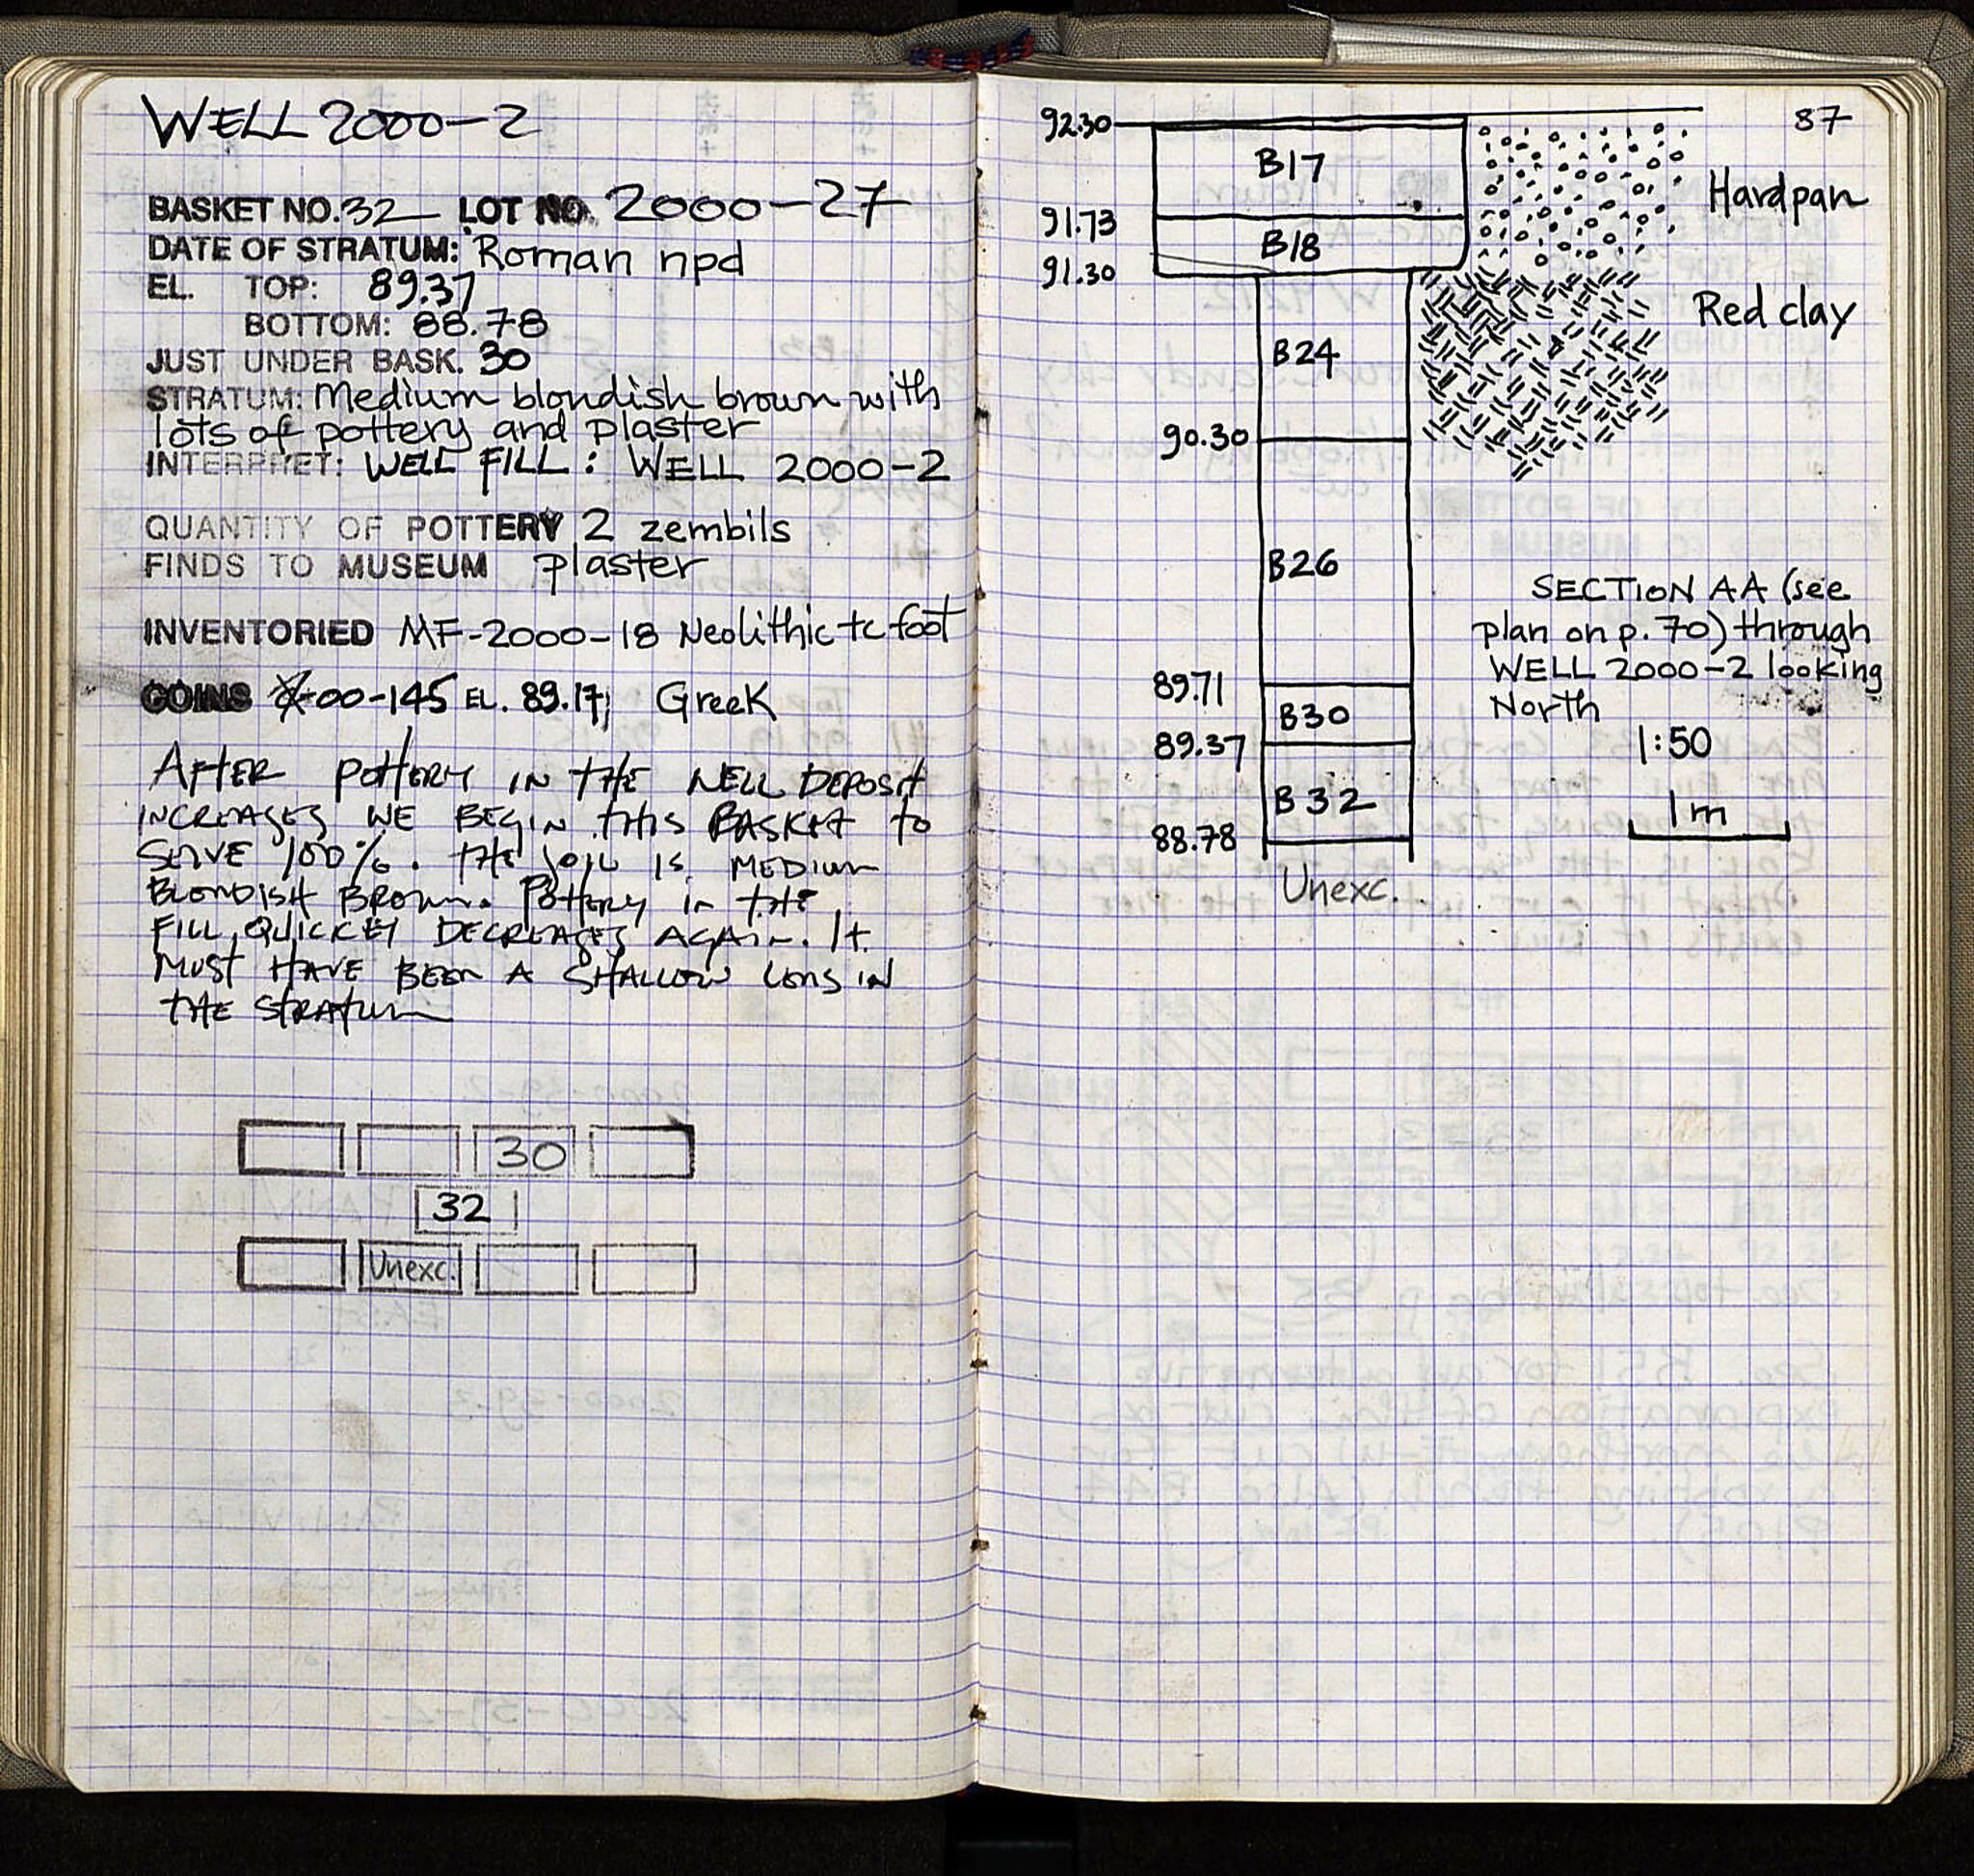 WELL 2000-2
BASKET NO. 32 LOT NO. 2000-27
DATE OF STRATUM: Roman npd
EL. TOP: 89.37
BOTTOM: 88.78
JUST UNDER BASK. 30
STRATUM: Medium blondish brown with
lots of pottery and plaster
INTERPRET: WELL FILL: WELL 2000-2
QUANTITY OF POTTERY 2 zembils
FINDS TO MUSEUM plaster
INVENTORIED MF-2000-18 Neolithic tc foot
COINS 00-145 EL. 89.17; Greek
AFTER POTTERY IN THE WELL DEPOSIT
INCREASES WE BEGIN THIS BASKET TO
SIEVE 100%. THE SOIL IS MEDIUM
BLONDISH BROWN. POTTERY IN THE
FILL QUICKLY DECREASES AGAIN. It
MUST HAVE BEEN A SHALLOW LENS IN
THE STRATUM
30
32
Unexc.
87
92.30
B17
Hardpan
91.73
B18
91.30
Red clay
B24
90.30
B26
SECTION AA (see
plan on p. 70) through
WELL 2000-2 looking
North
89.71
B30
1:50
89.37
B32
1m
88.78
Unexc.